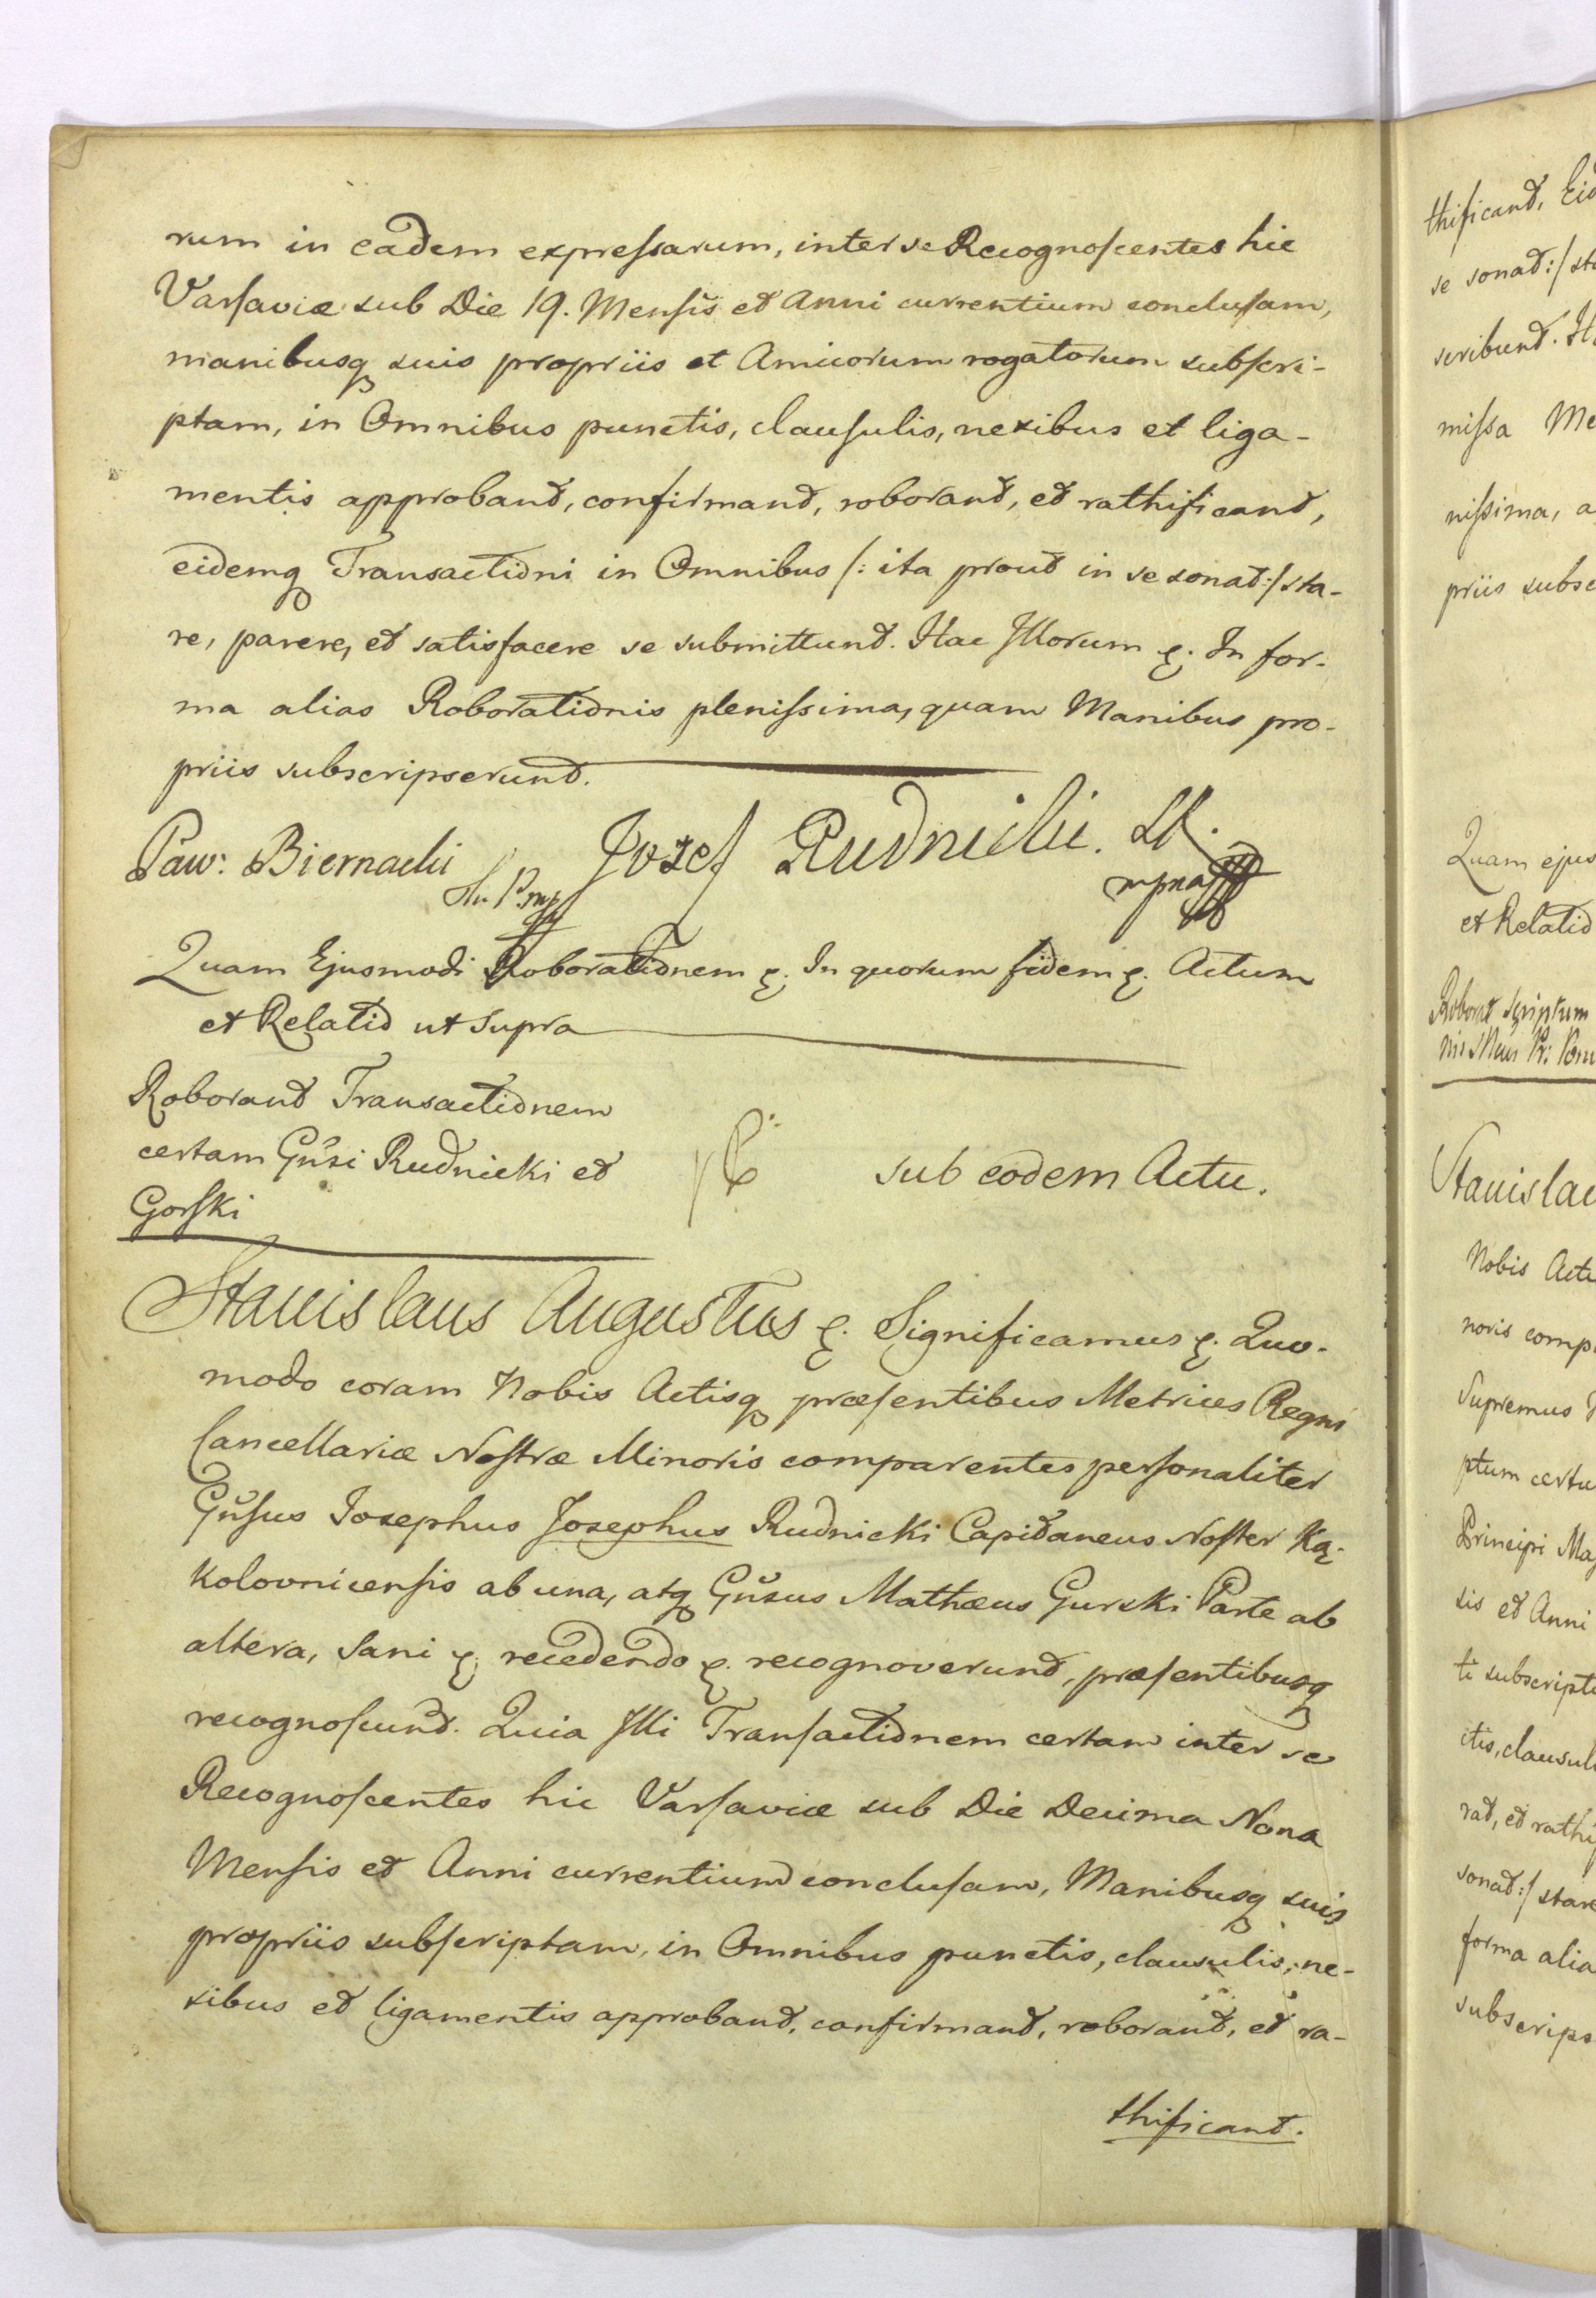 rum in eadem expreſsarum, inter se Recognoſcentes hic
Varſaviæ sub Die 19. Menſis et Anni currentium concluſam,
manibusq suis propriis et Amicorum rogatorum subſcri-
ptam, in Omnibus punctis, clauſulis, nexibus et liga-
mentis approbant, confirmant, roborant, et rathificant,
eidemq Transactioni in Omnibus /: ita prout in se sonat :/ sta-
re, parere, et satisfacere se submittunt. Hac Illorum &. In for-
ma alias Roborationis pleniſsima, quam Manibus pro-
priis subscripserunt.
Paw: Biernacki
Jozef Rudnicki.
mpria
Quam Ejusmodi Roborationem &. In quorum fidem &. Actum
et Relatio ut supra
Roborant Transactionem
certam Gnsi Rudnicki et
Gorſki
sub eodem Actu.
Stanislaus Augustus &. Significamus &. Quo-
modo coram Nobis Actisq præſentibus Metrices Regni
Cancellariæ Noſtræ Minoris comparentes perſonaliter
Gnſus Josephus Josephus Rudnicki Capitaneus Noſter Ką-
kolovnicenſis ab una, atq Gnsus Mathæus Gurski Parte ab
altera, Sani &. recedendo &. recognoverunt, præſentibusq
recognoſcunt. Quia Illi Tranſactionem certam inter se
Recognoſcentes hic Varſaviæ sub Die Decima Nona
Menſis et Anni currentium concluſam, Manibusq suis
propriis subſcriptam, in Omnibus punctis, clausulis, ne-
xibus et ligamentis approbant, confirmant, roborant, et ra-
thificant.
thificant, Eid
se sonat :/ sta
scribunt.
miſsa Me
niſsima, a
priis subsc
Quam ejus
et Relatio
Roborat Scriptum
Stanislau
Nobis Acti
noris comp
Supremus
ptum certu
Principi Mag
sis et Anni
ti subscript
ctis, clausul
rat, et rathi
sonat :/ stare
forma alia
subscrips